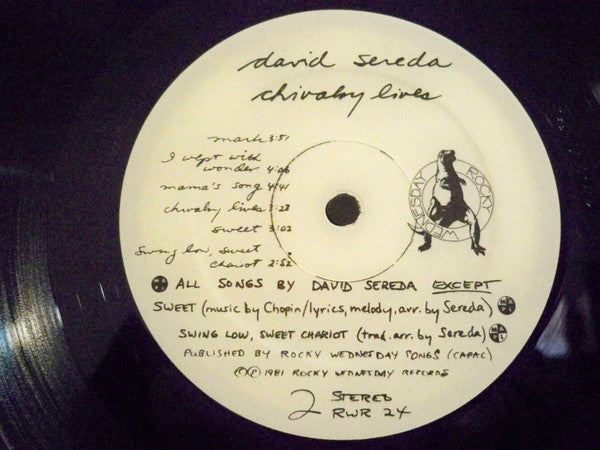 david sereda
chivalry lives
mark 3:51
I wept with
wonder 4:06
mama's song 4:41
chivalry lives 3:23
sweet 3:02
swing low, sweet
chariot 2:52
WEDNESDAY ROCKY
ALL SONGS BY DAVID SEREDA EXCEPT
SWEET (music by Chopin/lyrics, melody, arr. by Sereda)
SWING LOW, SWEET CHARIOT (trad. arr. by Sereda)
PUBLISHED BY ROCKY WEDNESDAY SONGS (CAPAC)
©℗ 1981 ROCKY WEDNESDAY RECORDS
2 STEREO
RWR 24